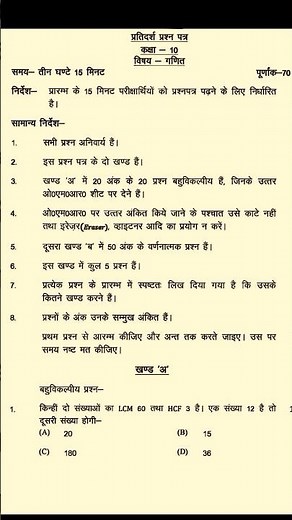 प्रतिदर्श प्रश्न पत्र
कक्षा – 10
विषय – गणित
समय– तीन घण्टे 15 मिनट पूर्णांक–70
निर्देश– प्रारम्भ के 15 मिनट परीक्षार्थियों को प्रश्नपत्र पढ़ने के लिए निर्धारित
है।
सामान्य निर्देश–
1. सभी प्रश्न अनिवार्य हैं।
2. इस प्रश्न पत्र के दो खण्ड हैं।
3. खण्ड 'अ' में 20 अंक के 20 प्रश्न बहुविकल्पीय हैं, जिनके उत्तर
ओ0एम0आर0 शीट पर देने हैं।
4. ओ0एम0आर0 पर उत्तर अंकित किये जाने के पश्चात उसे काटे नहीं
तथा इरेज़र(Eraser), व्हाइटनर आदि का प्रयोग न करें।
5. दूसरा खण्ड 'ब' में 50 अंक के वर्णनात्मक प्रश्न हैं।
6. इस खण्ड में कुल 5 प्रश्न हैं।
7. प्रत्येक प्रश्न के प्रारम्भ में स्पष्टतः लिख दिया गया है कि उसके
कितने खण्ड करने हैं।
8. प्रश्नों के अंक उनके सम्मुख अंकित हैं।
प्रथम प्रश्न से आरम्भ कीजिए और अन्त तक करते जाइए। उस पर
समय नष्ट मत कीजिए।
खण्ड 'अ'
बहुविकल्पीय प्रश्न–
1. किन्हीं दो संख्याओं का LCM 60 तथा HCF 3 है। एक संख्या 12 है तो 1
दूसरी संख्या होगी–
(A) 20 (B) 15
(C) 180 (D) 36